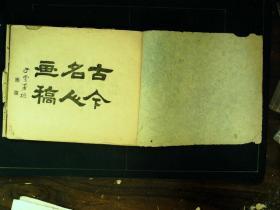 古今
名人
画稿